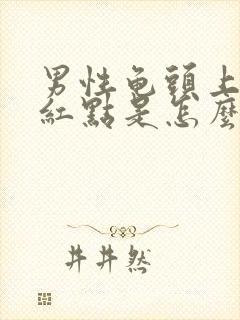 男性龟頭上
紅點是怎麼
井井然